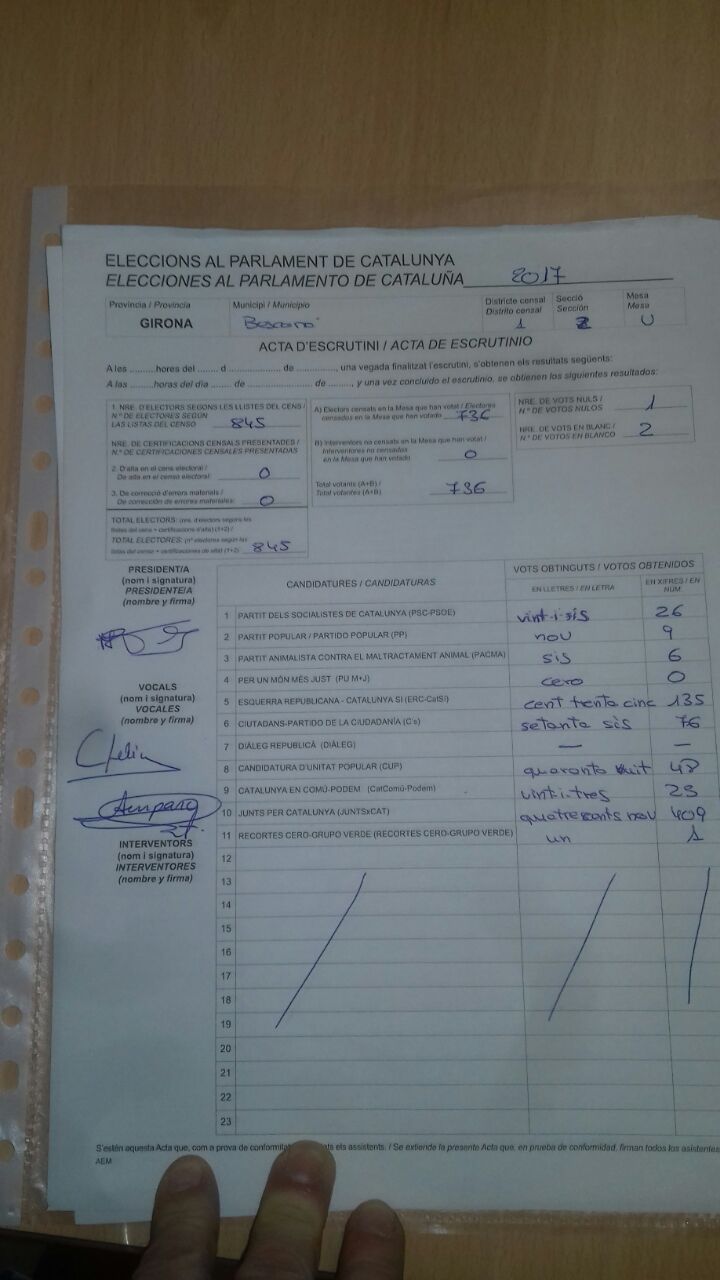 ELECCIONS AL PARLAMENT DE CATALUNYA
ELECCIONES AL PARLAMENTO DE CATALUÑA 2017
Provincia / Provincia
GIRONA
Municipi / Municipio
Bescanó
Districte censal
Distrito censal
1
Secció
Sección
2
Mesa
Mesa
U
ACTA D'ESCRUTINI / ACTA DE ESCRUTINIO
A les ......... hores del ....... d ..................... de ............, una vegada finalitzat l'escrutini, s'obtenen els resultats següents:
A las ......... horas del día ....... de ..................... de ........, y una vez concluido el escrutinio, se obtienen los siguientes resultados:
1. NRE. D'ELECTORS SEGONS LES LLISTES DEL CENS /
N.º DE ELECTORES SEGÚN
LAS LISTAS DEL CENSO 845
NRE. DE CERTIFICACIONS CENSALS PRESENTADES /
N.º DE CERTIFICACIONES CENSALES PRESENTADAS
2. D'alta en el cens electoral /
De alta en el censo electoral: 0
3. De correcció d'errors materials /
De corrección de errores materiales: 0
TOTAL ELECTORS: (nre. d'electors segons les
llistes del cens + certificacions d'alta) (1+2) /
TOTAL ELECTORES: (nº electores según las
listas del censo + certificaciones de alta) (1+2) 845
A) Electors censats en la Mesa que han votat / Electores
censados en la Mesa que han votado 736
B) Interventors no censats en la Mesa que han votat /
Interventores no censados
en la Mesa que han votado 0
Total votants (A+B) /
Total votantes (A+B) 736
NRE. DE VOTS NULS /
N.º DE VOTOS NULOS 1
NRE. DE VOTS EN BLANC /
N.º DE VOTOS EN BLANCO 2
PRESIDENT/A
(nom i signatura)
PRESIDENTE/A
(nombre y firma)
VOCALS
(nom i signatura)
VOCALES
(nombre y firma)
Amparo
INTERVENTORS
(nom i signatura)
INTERVENTORES
(nombre y firma)
CANDIDATURES / CANDIDATURAS
VOTS OBTINGUTS / VOTOS OBTENIDOS
EN LLETRES / EN LETRA
EN XIFRES / EN NÚM.
1 PARTIT DELS SOCIALISTES DE CATALUNYA (PSC-PSOE) vint-i-sis 26
2 PARTIT POPULAR / PARTIDO POPULAR (PP) nou 9
3 PARTIT ANIMALISTA CONTRA EL MALTRACTAMENT ANIMAL (PACMA) sis 6
4 PER UN MÓN MÉS JUST (PU M+J) cero 0
5 ESQUERRA REPUBLICANA - CATALUNYA SÍ (ERC-CatSí) cent trenta cinc 135
6 CIUTADANS-PARTIDO DE LA CIUDADANÍA (C's) setanta sis 76
7 DIÀLEG REPUBLICÀ (DIÀLEG) — —
8 CANDIDATURA D'UNITAT POPULAR (CUP) quaranta vuit 48
9 CATALUNYA EN COMÚ-PODEM (CatComú-Podem) vint-i-tres 23
10 JUNTS PER CATALUNYA (JUNTSxCAT) quatrecents nou 409
11 RECORTES CERO-GRUPO VERDE (RECORTES CERO-GRUPO VERDE) un 1
12
13
14
15
16
17
18
19
20
21
22
23
S'estén aquesta Acta que, com a prova de conformitat els assistents. / Se extiende la presente Acta que, en prueba de conformidad, firman todos los asistentes
AEM